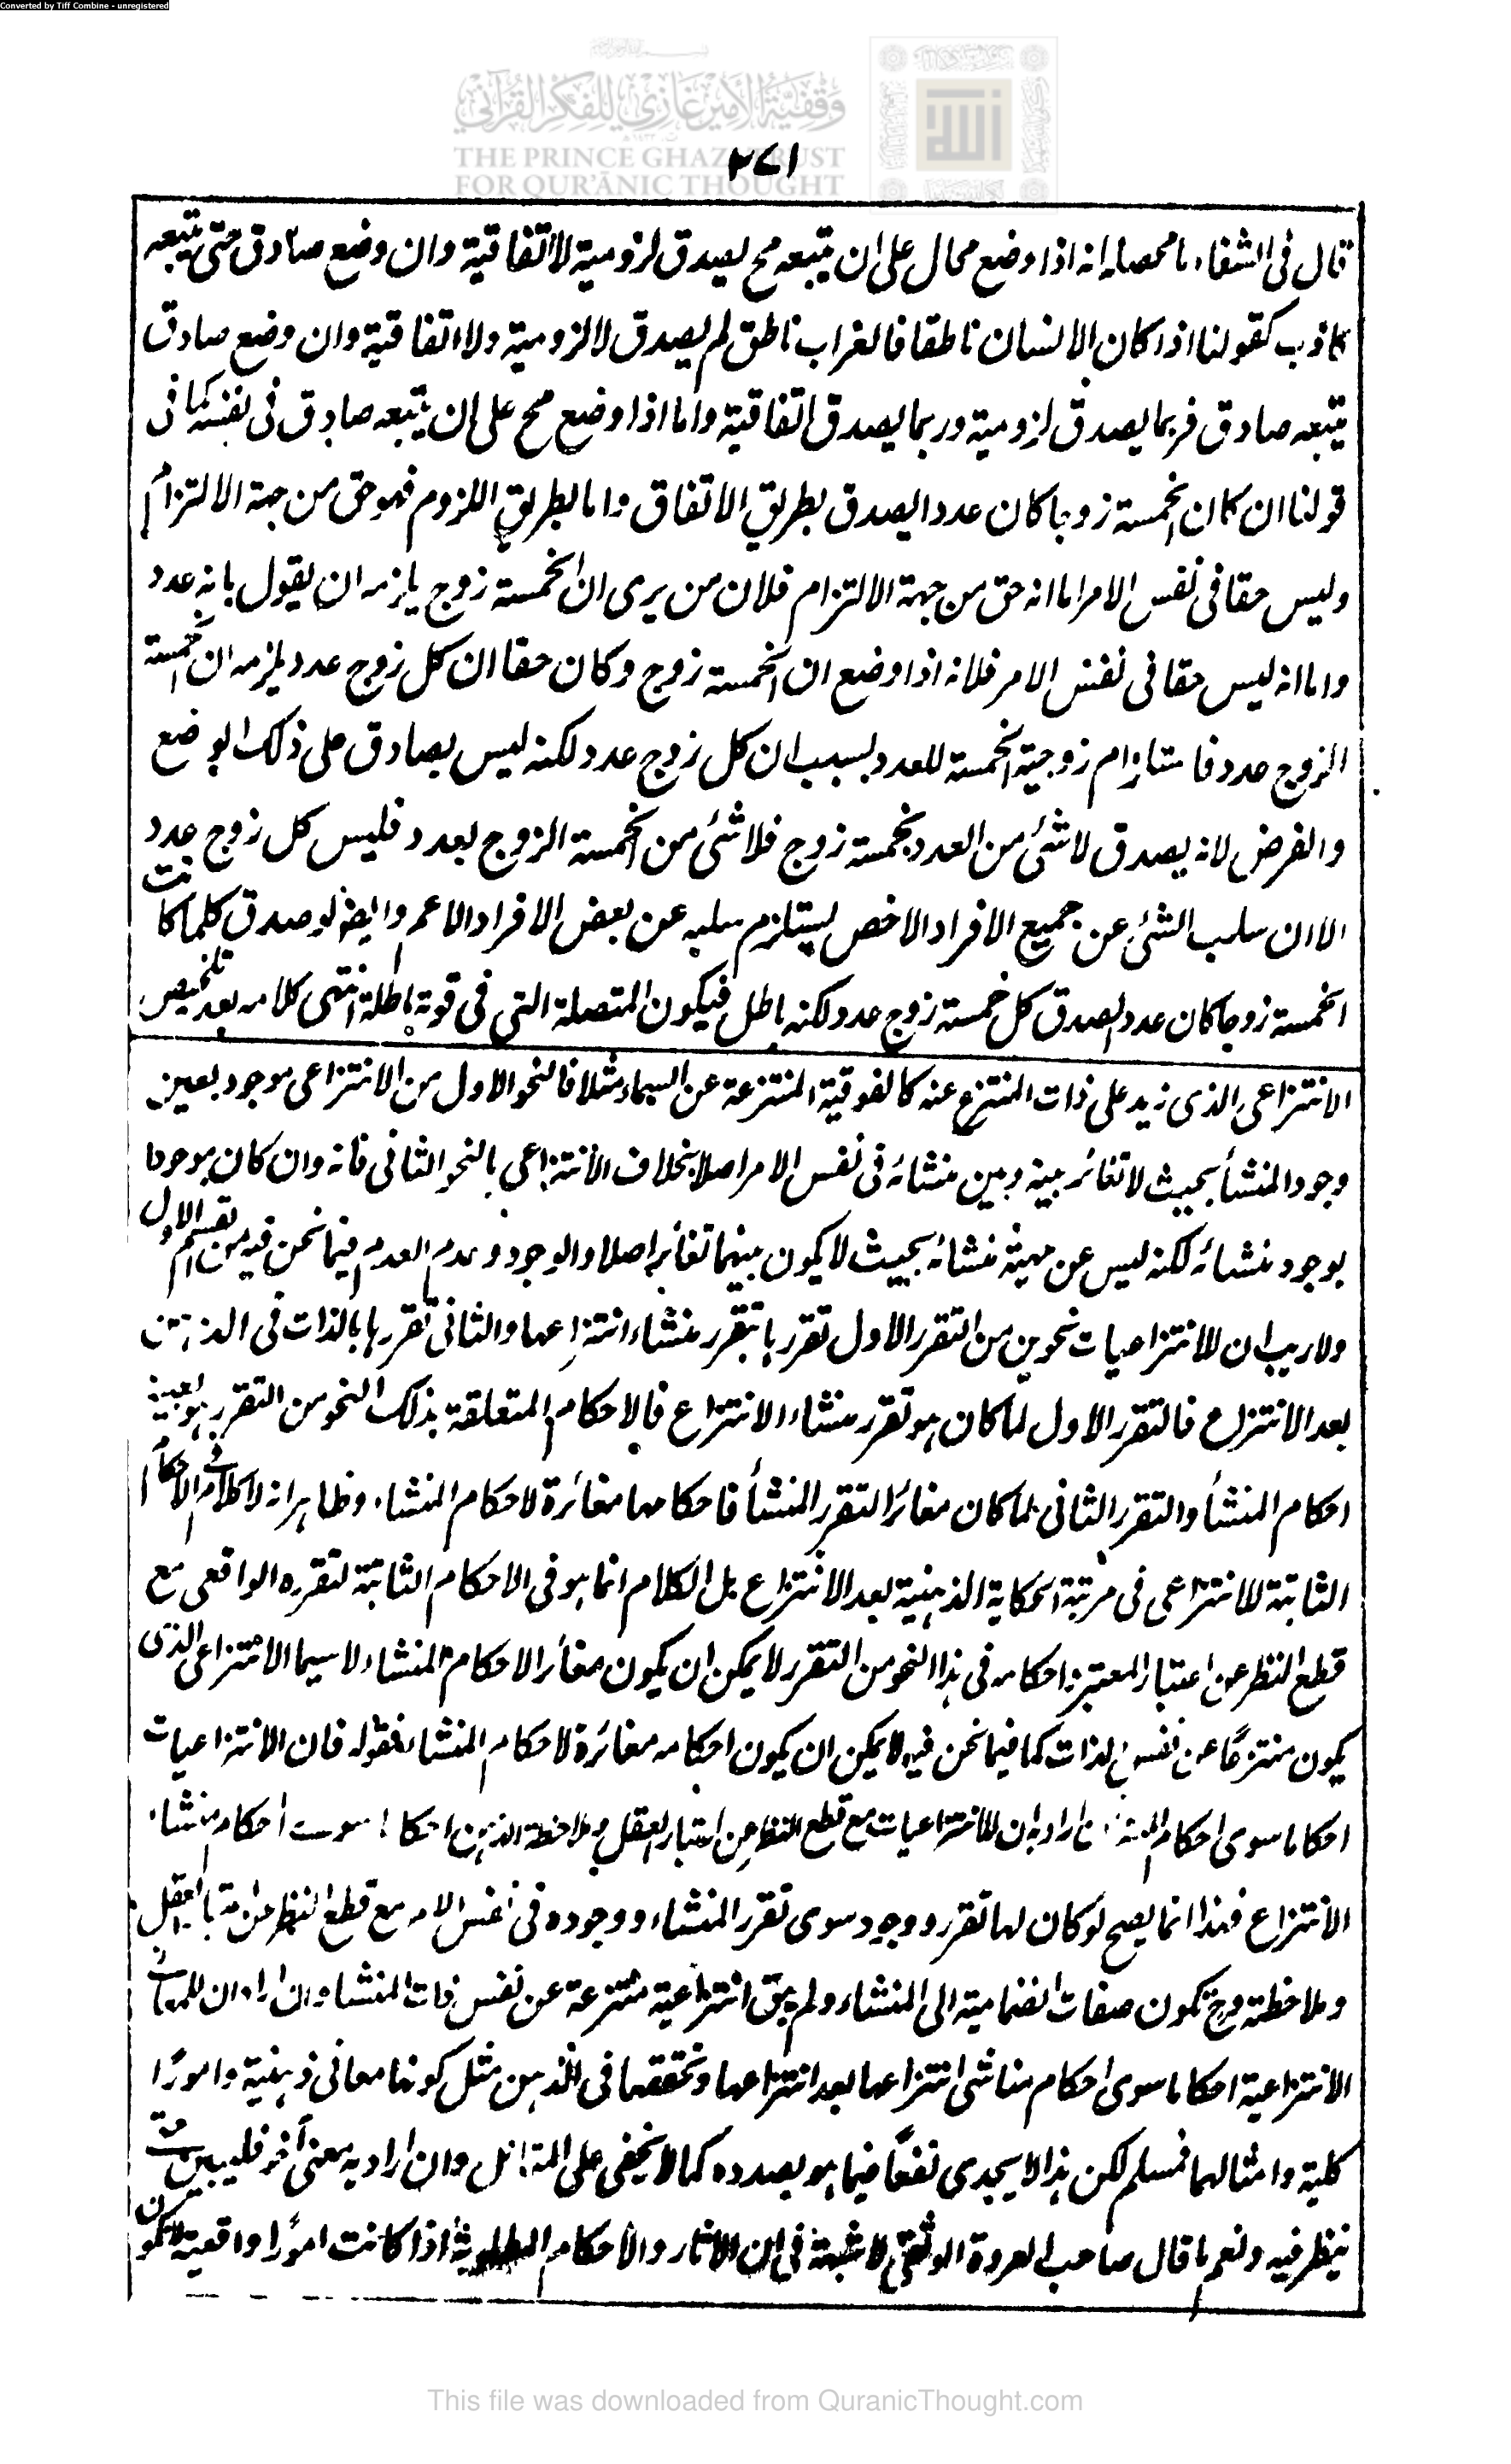 Converted by Tiff Combine - unregistered
وقفية الأمير غازي للفكر القرآني
THE PRINCE GHAZI TRUST
FOR QUR'ĀNIC THOUGHT
٢٧١
قال فى الشفاء ما محصله انه اذا وضع محال على ان يتبعه مح يصدق لزومية لا اتفاقية وان وضع صادق حتى يتبعه
كاذب كقولنا اذا كان الانسان ناطقا فالغراب ناطق لم يصدق لا لزومية ولا اتفاقية وان وضع صادق
يتبعه صادق فربما يصدق لزومية وربما يصدق اتفاقية واما اذا وضع مح على ان يتبعه صادق فى نفسه كما فى
قولنا ان كان الخمسة زوجا كان عددا يصدق بطريق الاتفاق واما بطريق اللزوم فهو حق من جهة الالتزام
وليس حقا فى نفس الامر اما انه حق من جهة الالتزام فلان من يرى ان الخمسة زوج يلزمه ان يقول بانه عدد
واما انه ليس حقا فى نفس الامر فلانه اذا وضع ان الخمسة زوج وكان حقا ان كل زوج عدد يلزمه ان الخمسة
الزوج عدد فاستلزام زوجية الخمسة للعدد بسبب ان كل زوج عدد لكنه ليس بصادق على ذلك الوضع
والفرض لانه يصدق لا شئ من العدد بخمسة زوج فلا شئ من الخمسة الزوج بعدد فليس كل زوج عدد
الا ان سلب الشئ عن جميع الافراد الاخص يستلزم سلبه عن بعض الافراد الاعم وايضا لو صدق كلما كانت
الخمسة زوجا كان عددا لصدق كل خمسة زوج عدد لكنه باطل فيكون المتصلة التى فى قوة باطلة انتهى كلامه بعد تلخيص
الانتزاعى الذى زيد على ذات المنتزع عنه كالفوقية المنتزعة عن السماء مثلا فالنحو الاول من الانتزاعى موجود بعين
وجود المنشأ بحيث لا تغائر بينه وبين منشائه فى نفس الامر اصلا بخلاف الانتزاعى بالنحو الثانى فانه وان كان موجودا
بوجود منشائه لكنه ليس عن مهية منشائه بحيث لا يكون بينهما تغائر اصلا والوجود وعدم العدم فيما نحن فيه من القسم الاول
ولا ريب ان للانتزاعيات نحوين من التقرر الاول تقررها بتقرر منشاء انتزاعها والثانى تقررها بالذات فى الذهن
بعد الانتزاع فالتقرر الاول لما كان هو تقرر منشاء الانتزاع فالاحكام المتعلقة بذلك النحو من التقرر هو بعينه
احكام المنشأ والتقرر الثانى لما كان مغائرا لتقرر المنشأ فاحكامها مغائرة لاحكام المنشاء وظاهر انه لا كلام فى الاحكام
الثابتة للانتزاعى فى مرتبة الحكاية الذهنية بعد الانتزاع بل الكلام انما هو فى الاحكام الثابتة لتقرره الواقعى مع
قطع النظر عن اعتبار المعتبر واحكامه فى هذا النحو من التقرر لا يمكن ان يكون مغائرا لاحكام المنشاء لا سيما الانتزاعى الذى
يكون منتزعًا عن نفس الذات كما فيما نحن فيه لا يمكن ان يكون احكامه مغائرة لاحكام المنشاء فقوله فان الانتزاعيات
احكاما سوى احكام المنشاء ان اراد به ان للانتزاعيات مع قطع النظر عن اعتبار العقل وملاحظة الذهن احكاما سوى احكام منشاء
الانتزاع فهذا انما يصح لو كان لها تقرر ووجود سوى تقرر المنشاء ووجوده فى نفس الامر مع قطع النظر عن العقل
وملاحظته وح تكون صفات انضمامية الى المنشاء ولم يبق انتزاعية منتزعة عن نفس ذات المنشاء وان اراد ان للمعانى
الانتزاعية احكاما سوى احكام مناشى انتزاعها بعد انتزاعها وتحققها فى الذهن مثل كونها معانى ذهنية وامورًا
كلية وامثالهما فمسلم لكن هذا لا يجدى نفعًا فيما هو بصدده كما لا يخفى على المتامل وان اراد به معنى آخر فليبين حتى
ينظر فيه ونعم ما قال صاحب العروة الوثقى لا شبهة فى ان الاثار والاحكام المطلوبة اذا كانت امورًا واقعية لا تكون
This file was downloaded from QuranicThought.com